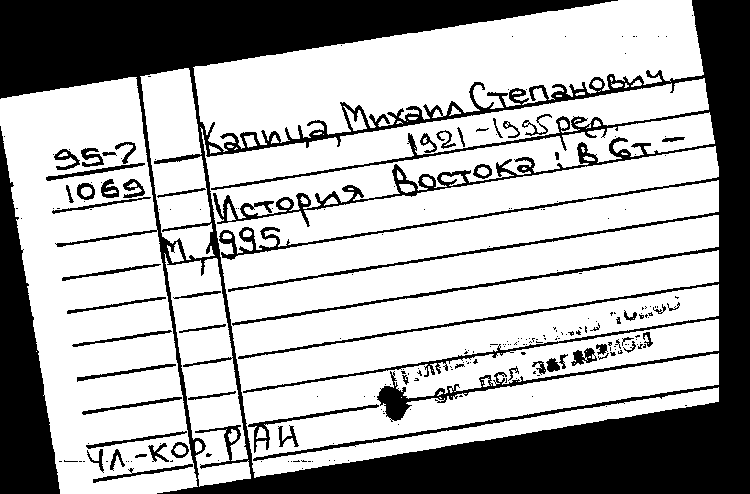 95-7
1069
Капица, Михаил Степанович,
1921-1995 ред.
История Востока : в 6т.-
М., 1995.
тодов
см. под заглавием
Чл.-кор. РАН